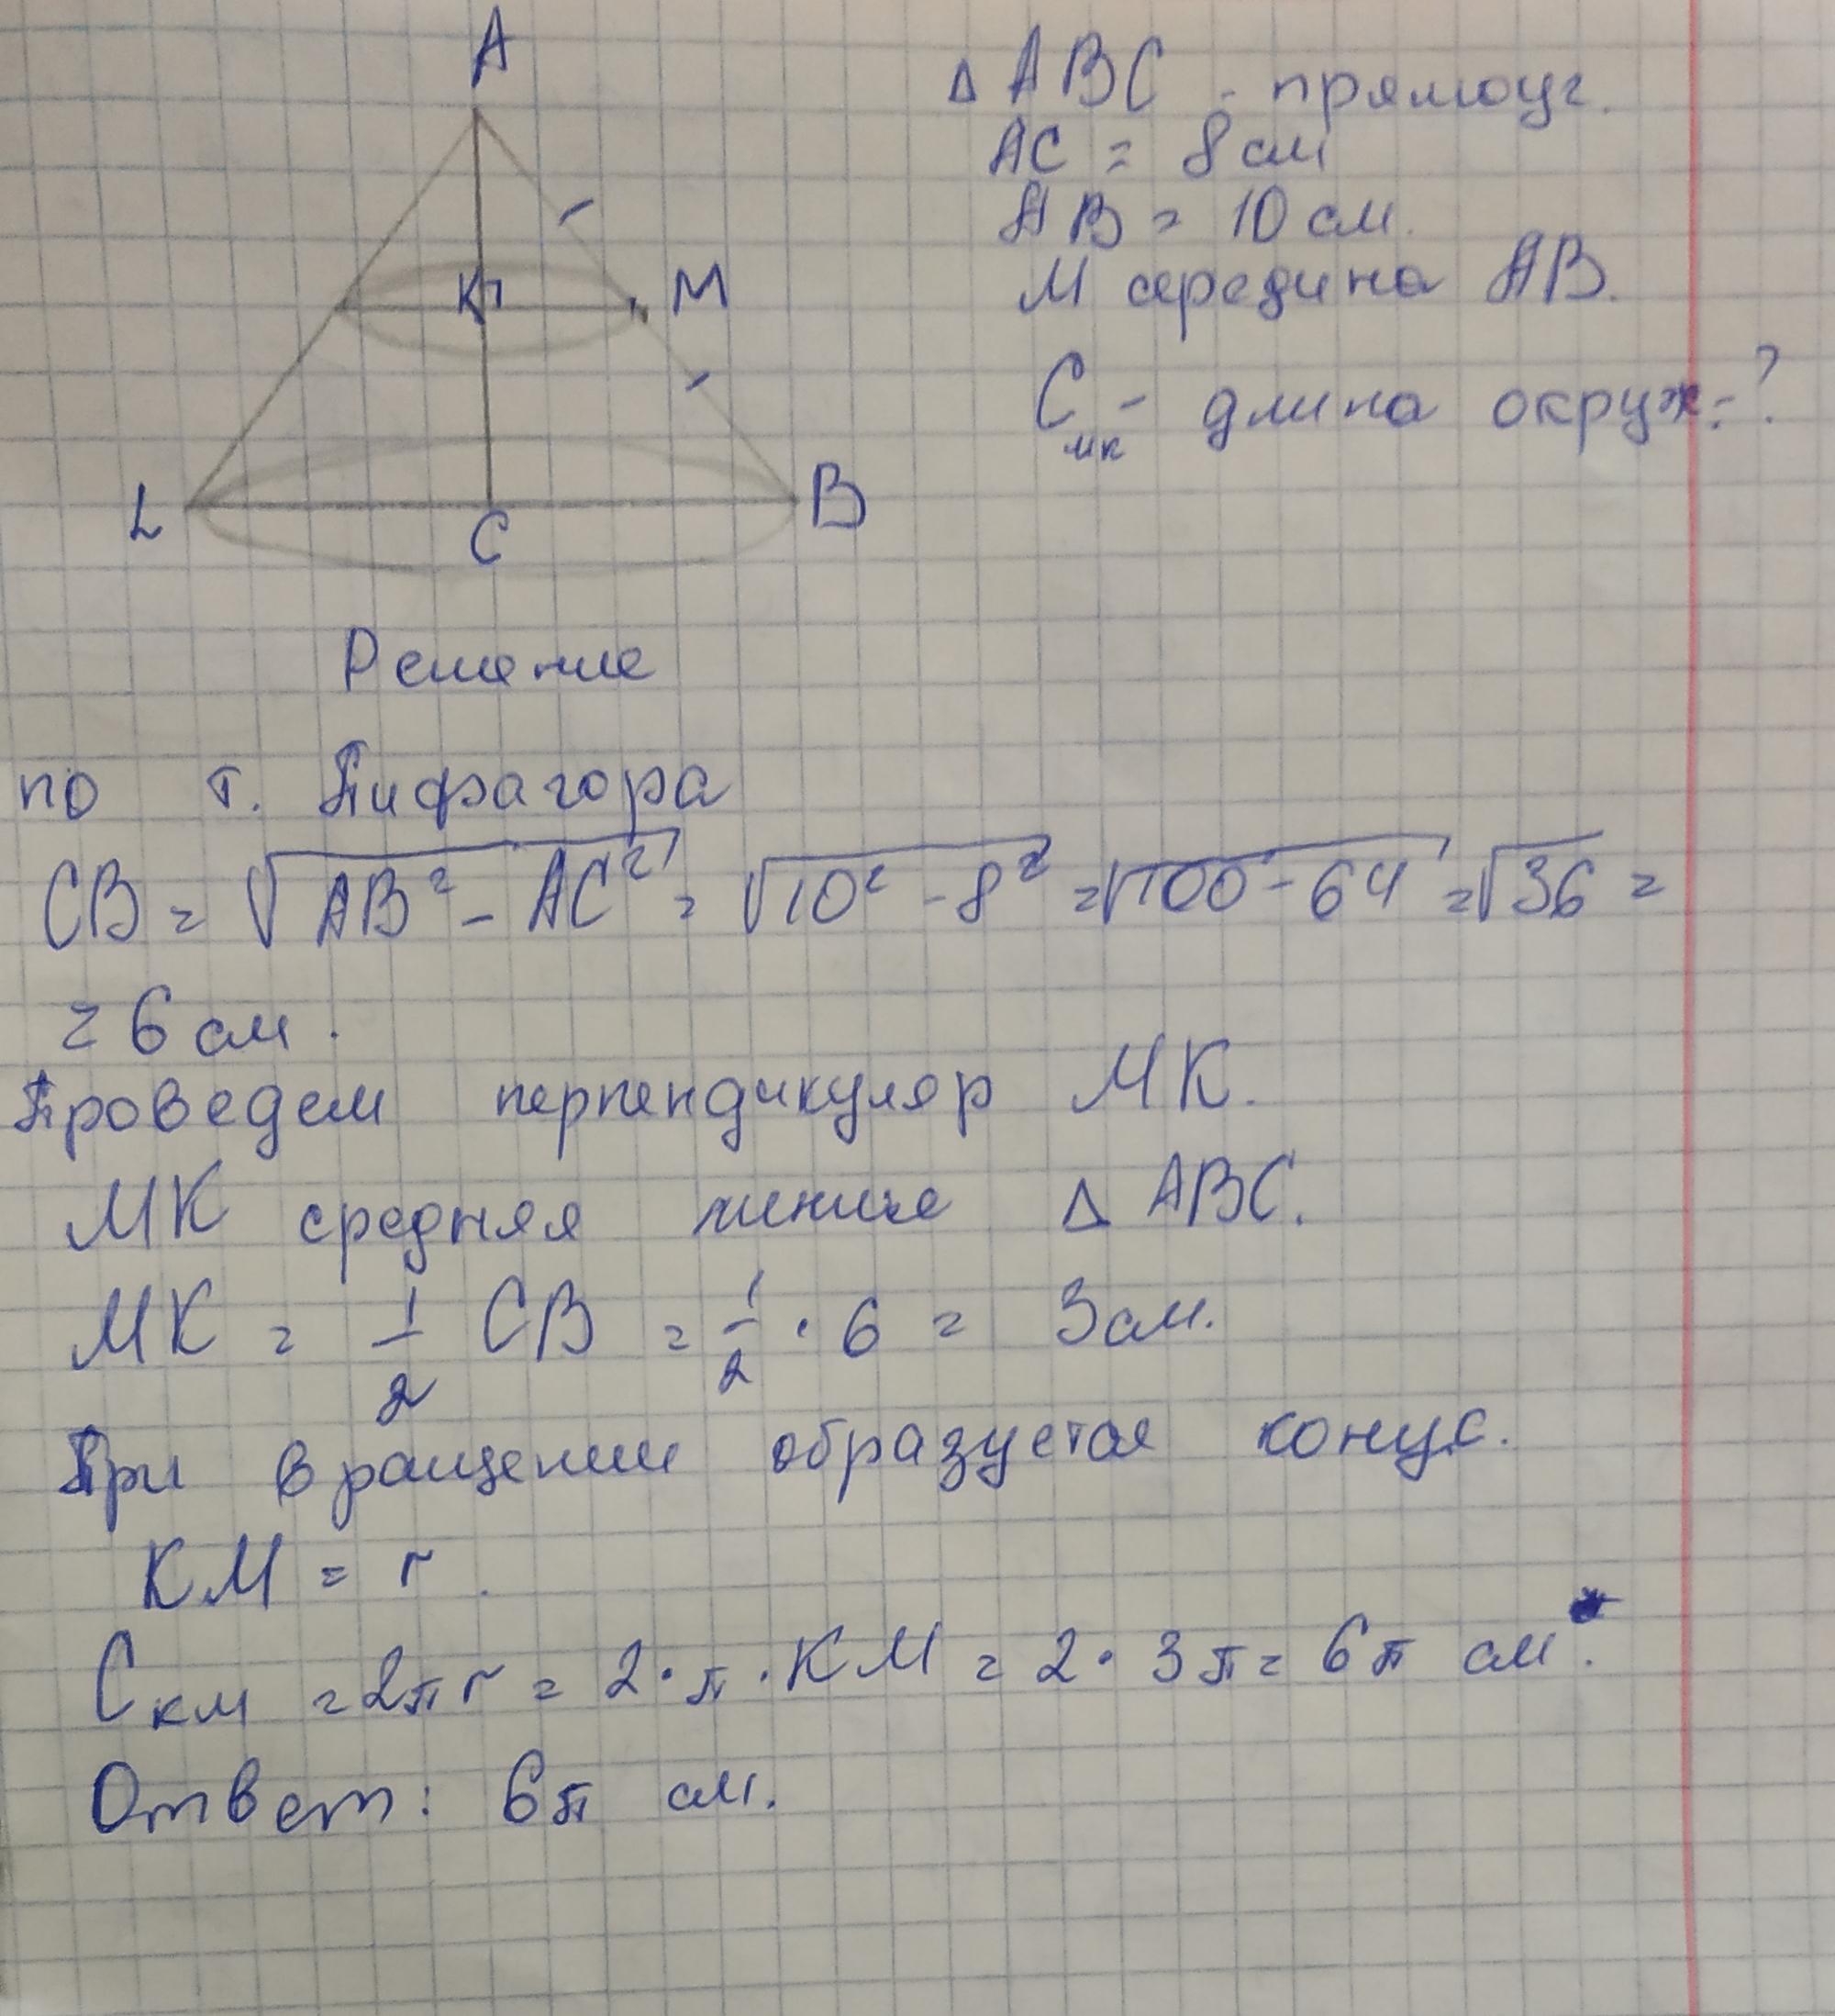 A
К
M
L
C
B
Δ ABC - прямоуг.
AC = 8 см
AB = 10 см.
M середина AB.
C мк - длина окруж. - ?
Решение
по т. Пифагора
CB = √AB² - AC² = √10² - 8² = √100 - 64 = √36 =
= 6 см.
Проведем перпендикуляр MK.
MK средняя линия Δ ABC.
MK = 1/2 CB = 1/2 · 6 = 3 см.
При вращении образуется конус.
KM = r.
C км = 2πr = 2 · π · KM = 2 · 3π = 6π см.
Ответ: 6π см.